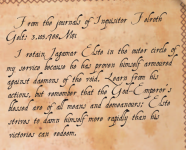 From the journals of Inquisitor Toleoth
Gelt: 3.112.768.M41
I retain Jagamar Elsto in the outer circle of
my service because he has proven himself armoured
against daemons of the void. Learn from his
actions, but remember that the God-Emperor's
blessed are of all means and demeanours; Elsto
strives to damn himself more rapidly than his
victories can redeem.